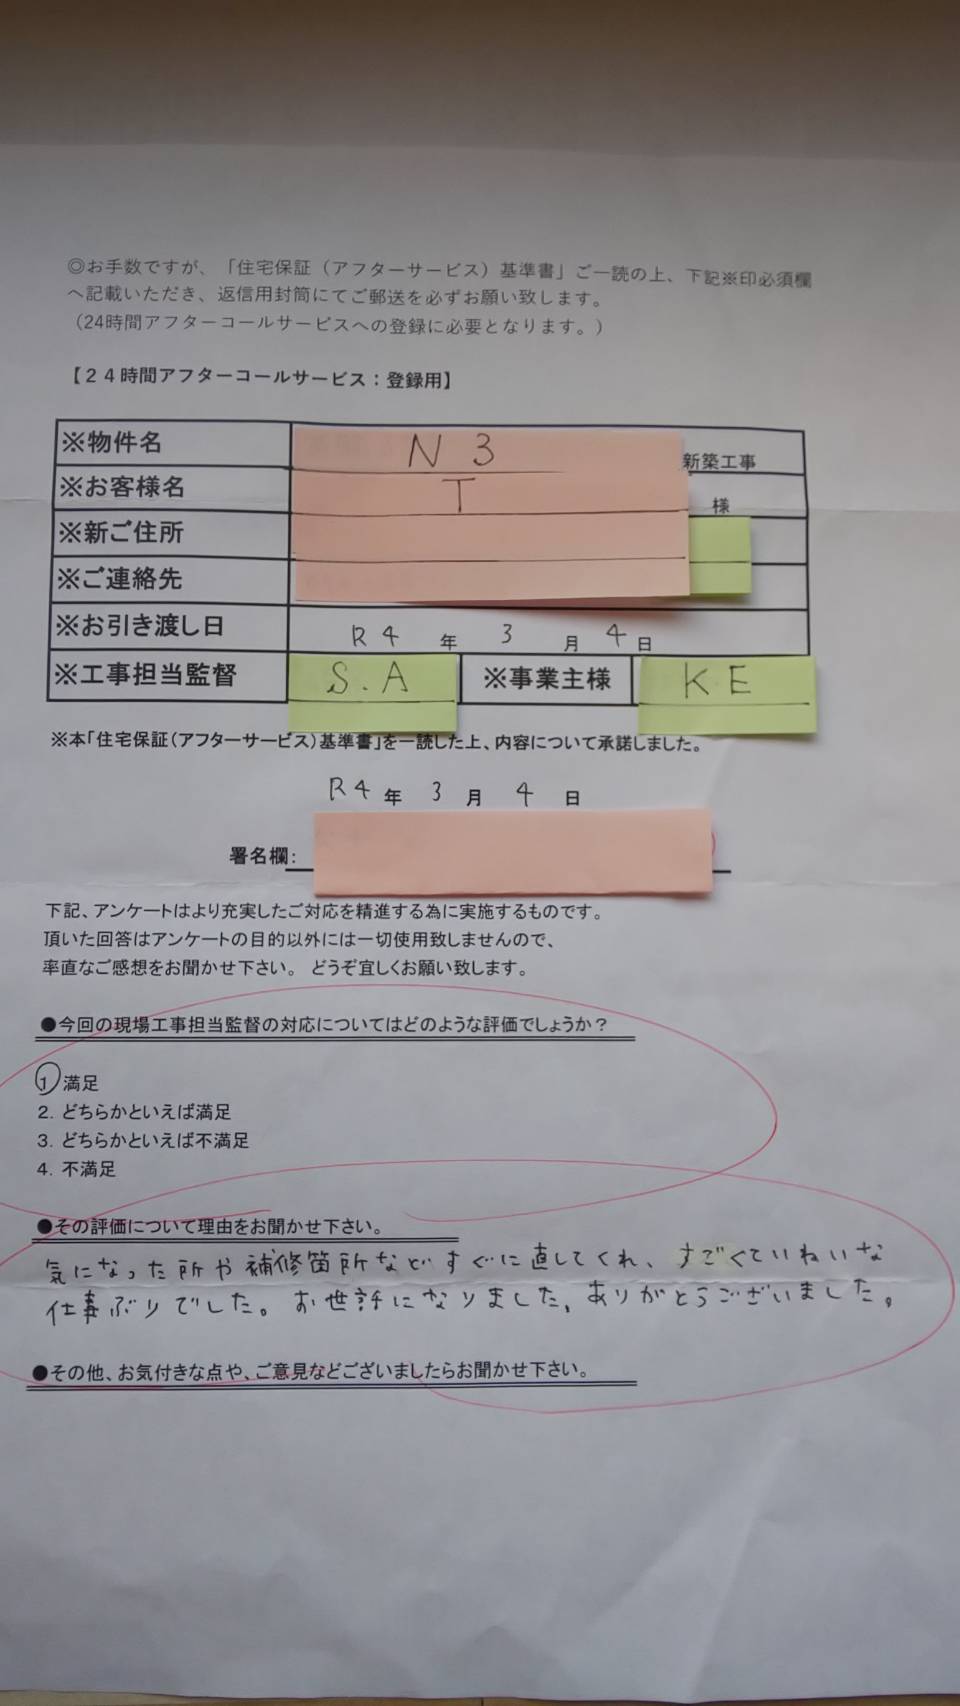 ◎お手数ですが、「住宅保証（アフターサービス）基準書」ご一読の上、下記※印必須欄
へ記載いただき、返信用封筒にてご郵送を必ずお願い致します。
（24時間アフターコールサービスへの登録に必要となります。）
【２４時間アフターコールサービス：登録用】
※物件名 N 3 新築工事
※お客様名 T 様
※新ご住所
※ご連絡先
※お引き渡し日 R4 年 3 月 4 日
※工事担当監督 S.A ※事業主様 KE
※本「住宅保証（アフターサービス）基準書」を一読した上、内容について承諾しました。
R4 年 3 月 4 日
署名欄：
下記、アンケートはより充実したご対応を精進する為に実施するものです。
頂いた回答はアンケートの目的以外には一切使用致しませんので、
率直なご感想をお聞かせ下さい。 どうぞ宜しくお願い致します。
●今回の現場工事担当監督の対応についてはどのような評価でしょうか？
1 満足
2. どちらかといえば満足
3. どちらかといえば不満足
4. 不満足
●その評価について理由をお聞かせ下さい。
気になった所や補修箇所などすぐに直してくれ、すごくていねいな
仕事ぶりでした。お世話になりました。ありがとうございました。
●その他、お気付きな点や、ご意見などございましたらお聞かせ下さい。